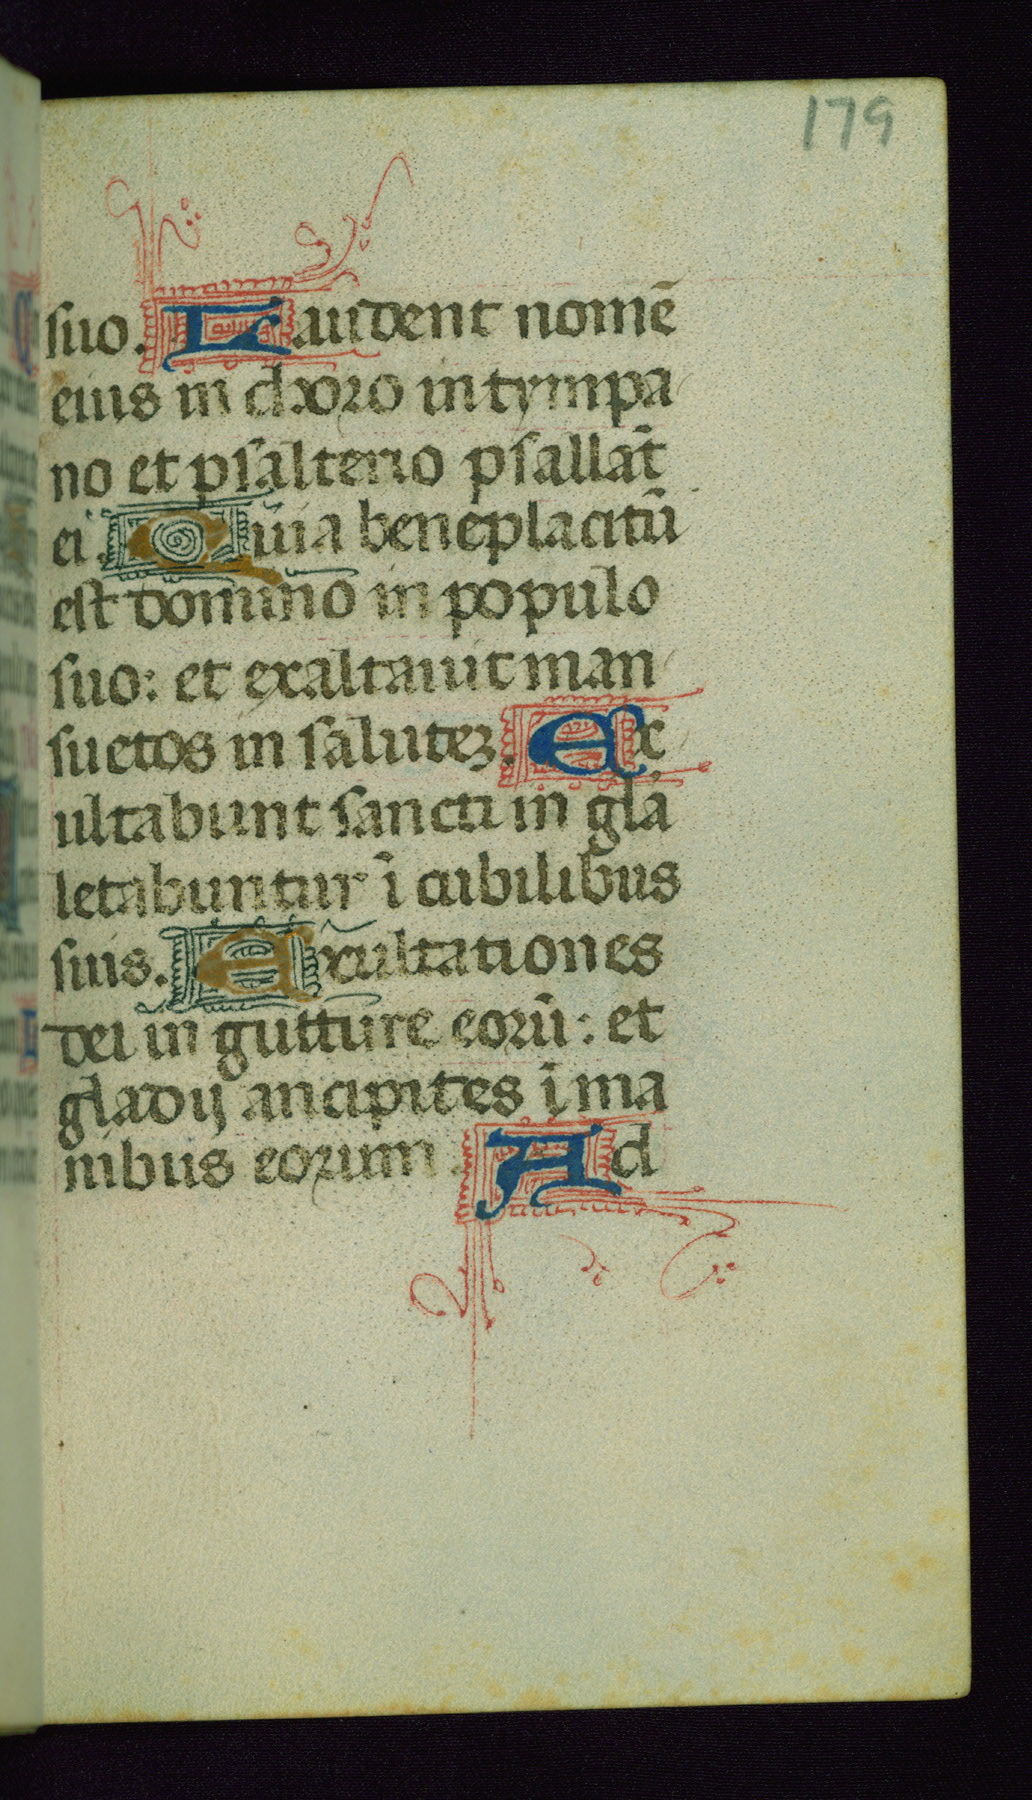 179
suo. Laudent nomē
eius in choro in tympa
no et psalterio psallāt
ei. Quia beneplacitū
est domino in populo
suo: et exaltauit man
suetos in salutez. Ex
ultabunt sancti in gl̄a
letabuntur ī cubilibus
suis. Exultationes
dei in gutture eorū: et
gladij ancipites ī ma
nibus eorum. Ad